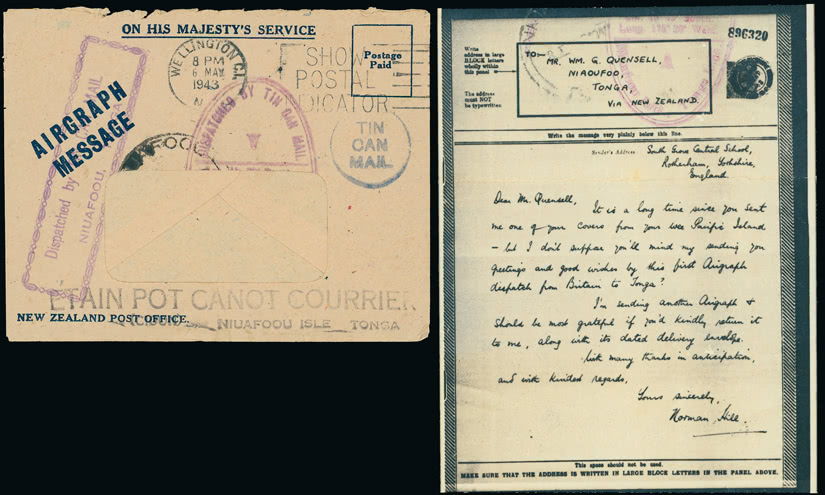 ON HIS MAJESTY'S SERVICE
WELLINGTON C.1.
8 PM
6 MAY.
1943
N
SHOW
POSTAL
DICATOR
Postage
Paid
AIRGRAPH
MESSAGE
Dispatched by
MAIL
NIUAFOOU,
DISPATCHED BY TIN CAN MAIL
TIN
CAN
MAIL
ETAIN POT CANOT COURRIER
NIUAFOOU ISLE TONGA
NEW ZEALAND POST OFFICE.
896320
Write
address in large
BLOCK letters
wholly within
this panel
The address
must NOT
be typewritten.
TO:— MR. WM. G. QUENSELL,
NIAOUFOO,
TONGA.
VIA NEW ZEALAND.
Write the message very plainly below this line.
Sender's Address South Grove Central School,
Rotherham, Yorkshire,
England
Dear Mr. Quensell,
It is a long time since you sent
me one of your covers from your wee Pacific Island
– but I don't suppose you'll mind my sending you
greetings and good wishes by this first Airgraph
dispatch from Britain to Tonga?
I'm sending another Airgraph &
should be most grateful if you'd kindly return it
to me, along with its dated delivery envelope.
With many thanks in anticipation,
and with kindest regards,
Yours sincerely,
Norman Hill.
This space should not be used.
MAKE SURE THAT THE ADDRESS IS WRITTEN IN LARGE BLOCK LETTERS IN THE PANEL ABOVE.